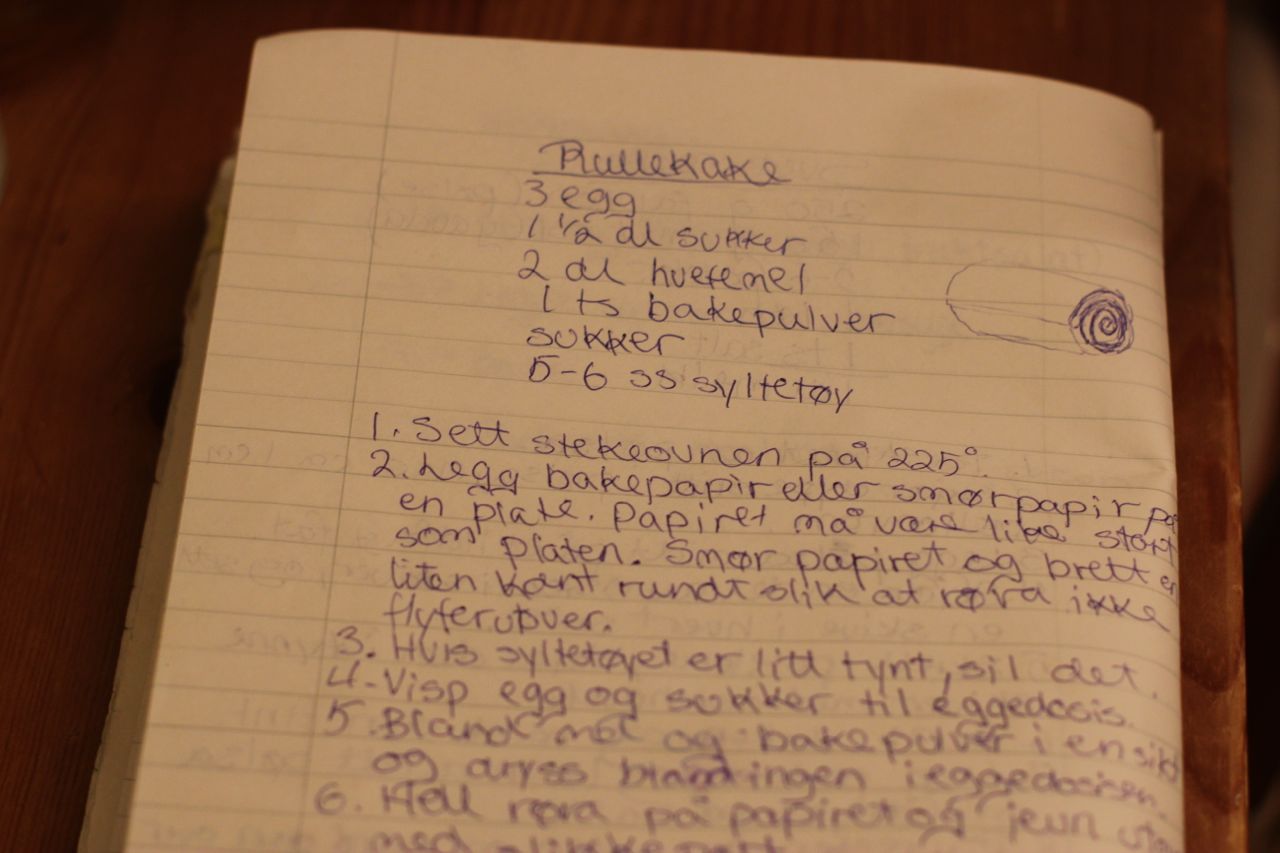 Rullekake
3 egg
1 1/2 dl sukker
2 dl hvetemel
1 ts bakepulver
sukker
5-6 ss syltetøy
1. Sett stekeovnen på 225°.
2. Legg bakepapir eller smørpapir på
en plate. Papiret må være like stort
som platen. Smør papiret og brett en
liten kant rundt slik at røra ikke
flyter utover.
3. Hvis syltetøyet er litt tynt, sil det.
4. Visp egg og sukker til eggedosis.
5. Bland mel og bakepulver i en sikt
og dryss blandingen i eggedosisen.
6. Hell røra på papiret og jevn utover
med slikkepott.